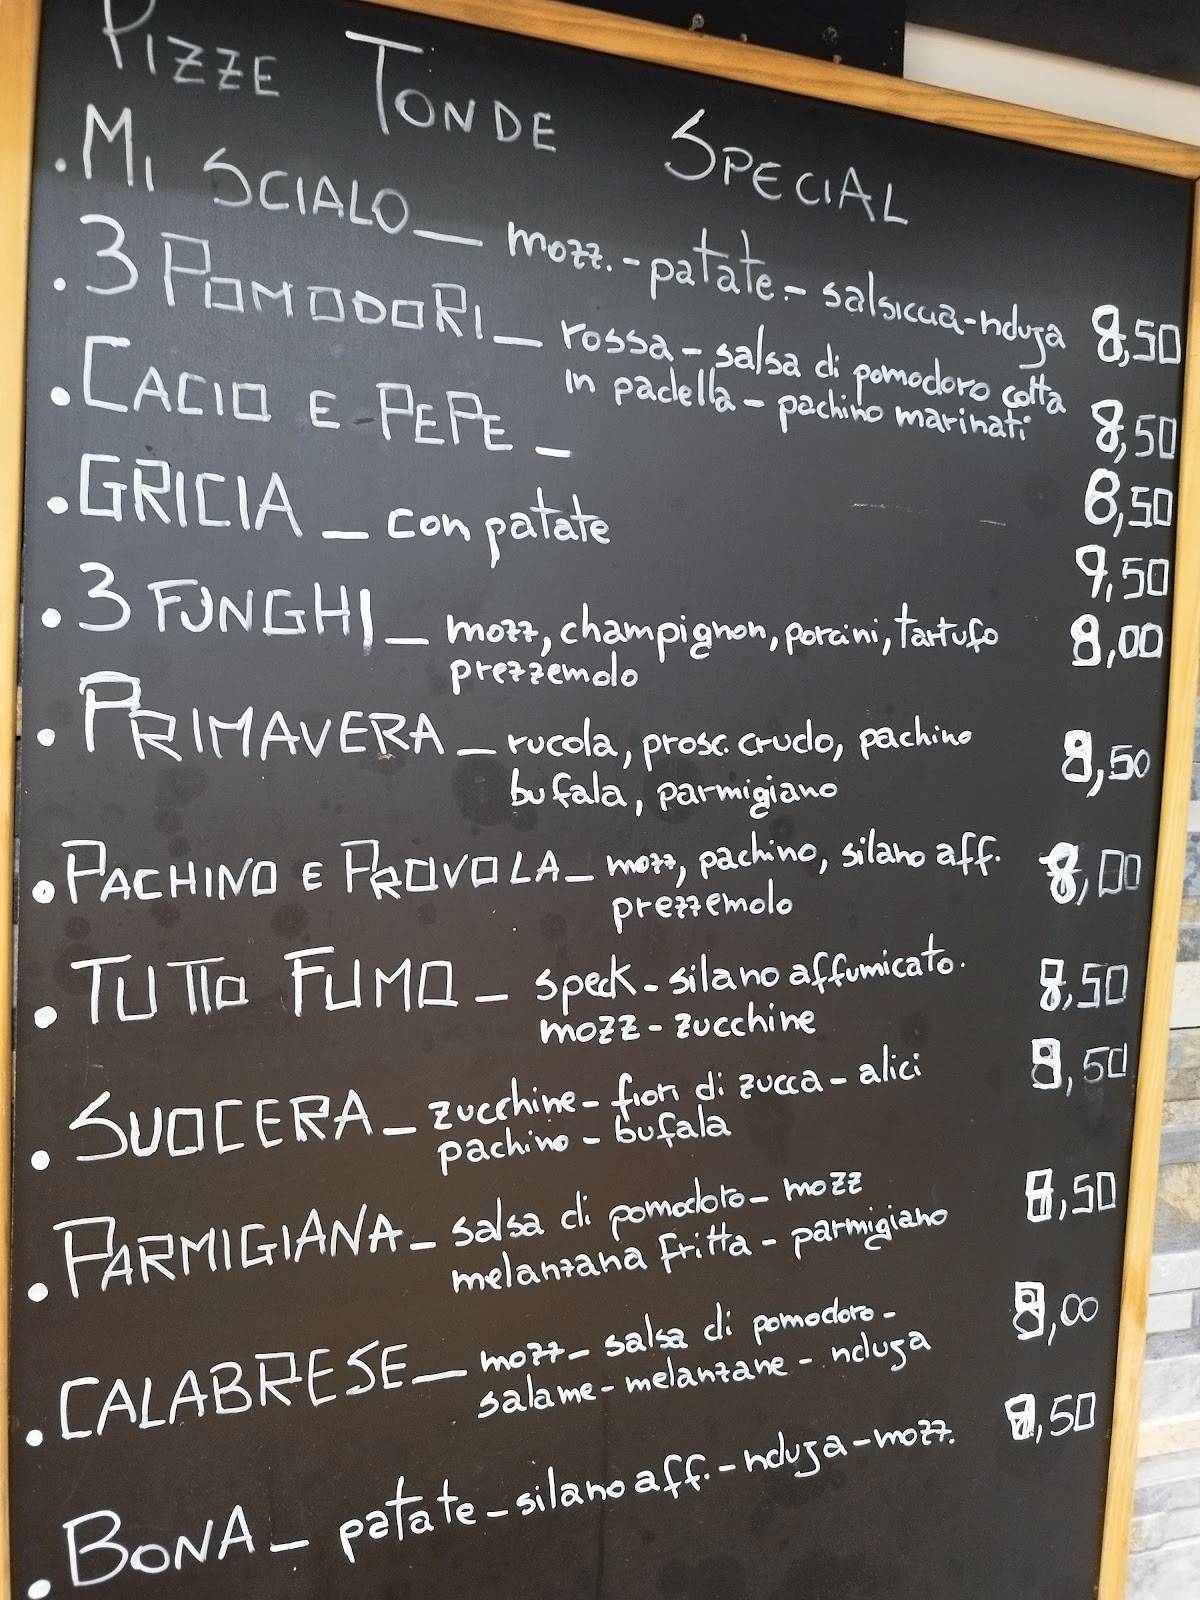 PIZZE TONDE SPECIAL
. MI SCIALO _ mozz. - patate - salsiccia - nduja 8,50
. 3 POMODORI _ rossa - salsa di pomodoro cotta
in padella - pachino marinati 8,50
. CACIO E PEPE _
. GRICIA _ con patate 9,50
. 3 FUNGHI _ mozz, champignon, porcini, tartufo 8,00
prezzemolo
. PRIMAVERA _ rucola, prosc. crudo, pachino 8,50
bufala, parmigiano
. PACHINO E PROVOLA _ mozz, pachino, silano aff. 8,00
prezzemolo
. TUTTO FUMO _ speck - silano affumicato. 8,50
mozz - zucchine
. SUOCERA _ zucchine - fiori di zucca - alici 8,50
pachino - bufala
. PARMIGIANA _ salsa di pomodoro - mozz 8,50
melanzana fritta - parmigiano
. CALABRESE _ mozz - salsa di pomodoro - 8,00
salame - melanzane - nduja
. BONA _ patate - silano aff. - nduja - mozz.